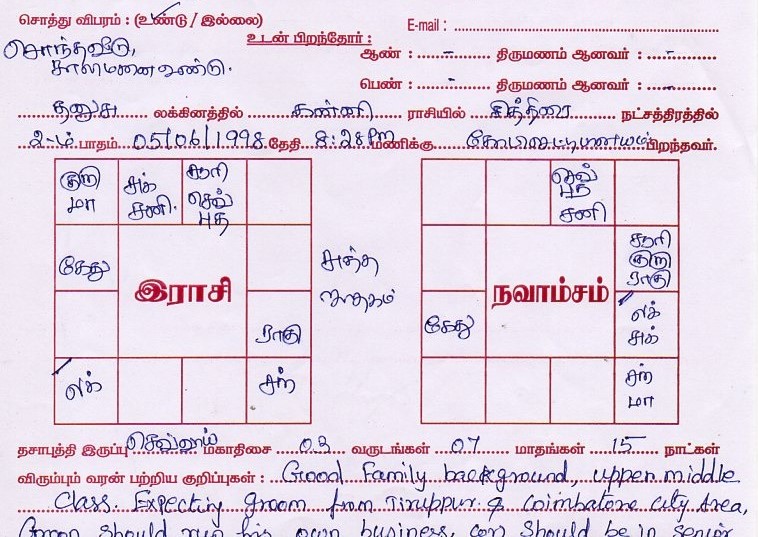 சொத்து விபரம் : (உண்டு / இல்லை)
E-mail :
சொந்தவீடு,
காலிமனை உண்டு.
உடன் பிறந்தோர் :
ஆண் : - திருமணம் ஆனவர் : -
பெண் : - திருமணம் ஆனவர் : -
தனுசு லக்கினத்தில் கன்னி ராசியில் சித்திரை நட்சத்திரத்தில்
2-ம் பாதம் 05/06/1998 தேதி 8:28 PM மணிக்கு கோபிசெட்டிபாளையம் பிறந்தவர்.
குரு
மா
சுக்
சனி.
சூரி
செவ்
புத
கேது
இராசி
ராகு
லக்
சந்
சுத்த
ஜாதகம்
செவ்
புத
சனி
சூரி
குரு
ராகு
நவாம்சம்
கேது
லக்
சுக்
சந்
மா
தசாபுத்தி இருப்பு செவ்வாய் மகாதிசை 03 வருடங்கள் 07 மாதங்கள் 15 நாட்கள்
விரும்பும் வரன் பற்றிய குறிப்புகள் : Good Family background, upper middle
Class. Expecting groom from Tiruppur & Coimbatore City Area,
Groom should run his own business, (or) should be in senior